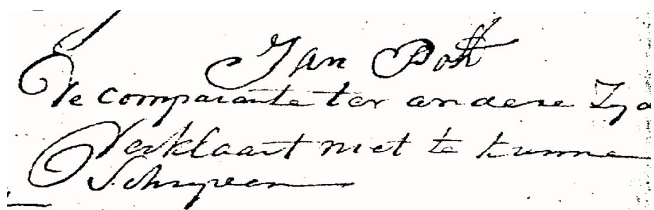 Jan Pott
De comparante ter andere Zyd
Verklaart niet te kunne
Schryven